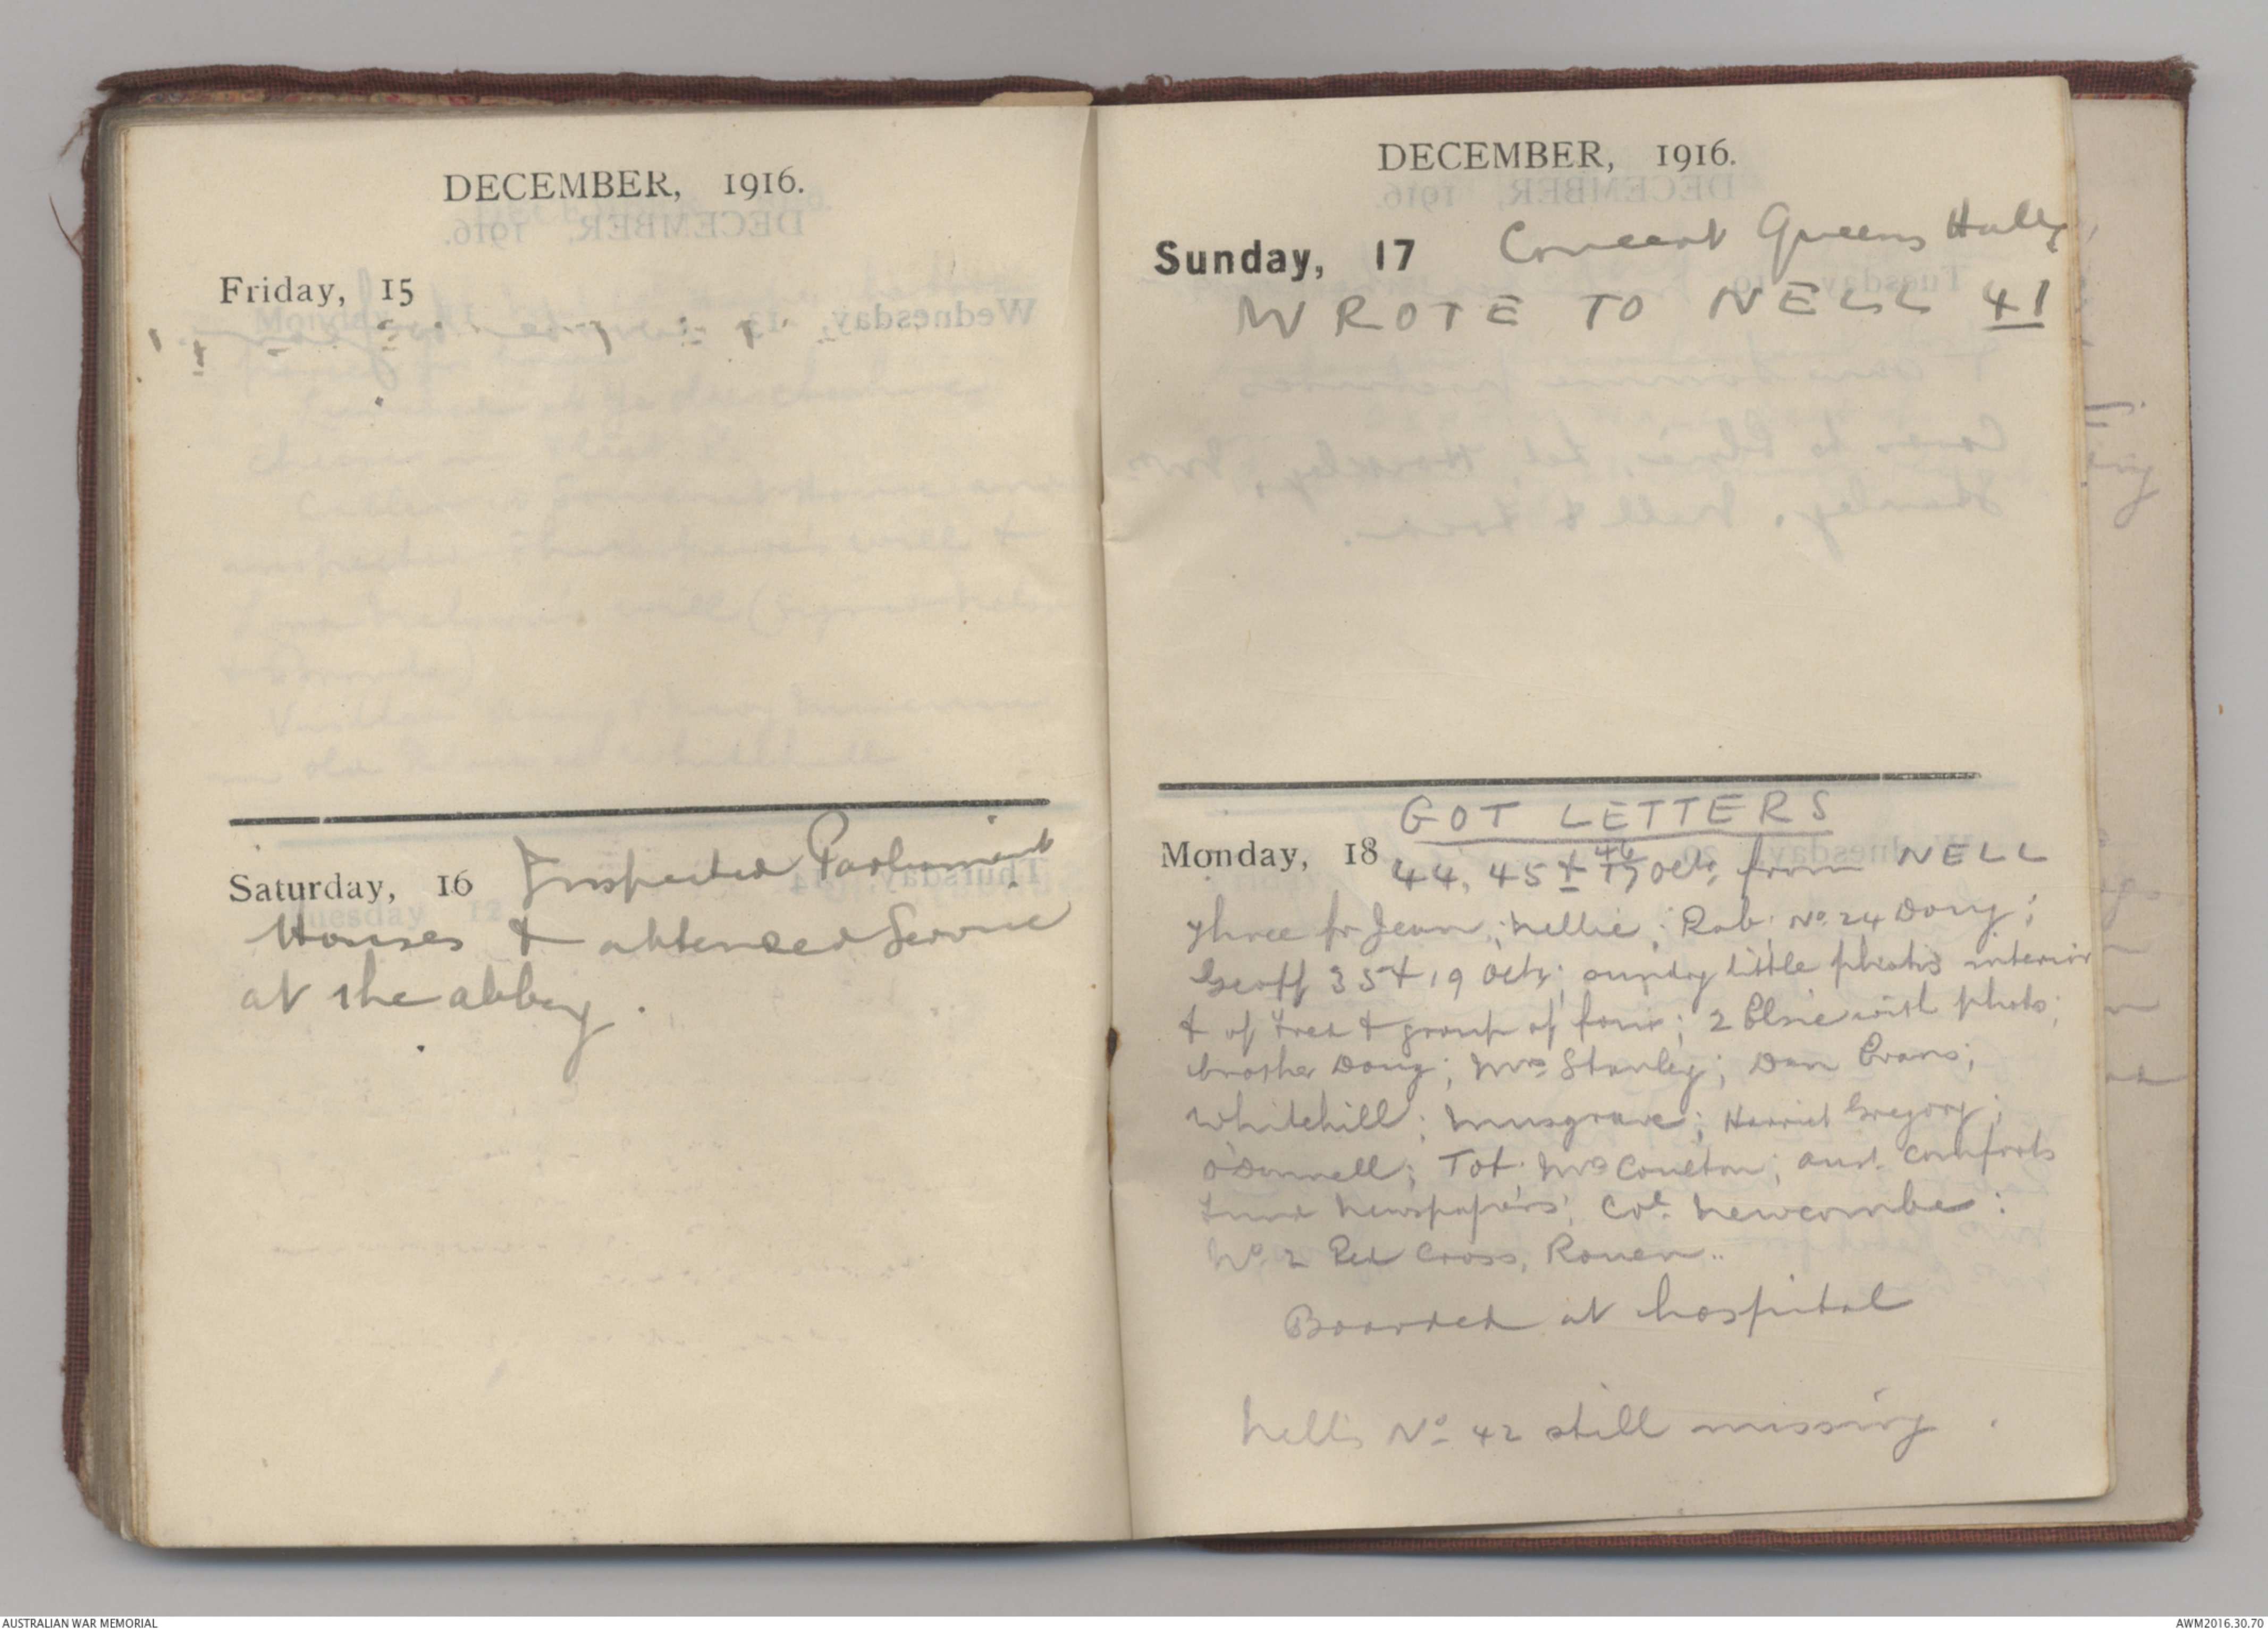 DECEMBER, 1916.
Friday, 15
Saturday, 16 Inspected Parliament
Houses & attended Service
at the abbey.
DECEMBER, 1916.
Sunday, 17 Concert Queens Hall
WROTE TO NELL 41
GOT LETTERS
Monday, 18 44, 45 & 46 Oct, from NELL
three fr Jean; Nellie; Rab. No. 24 Doug;
Geoff 35 & 19 Oct; sundry little photos interior
& of Fred & group of four; 2 Elsie with photo;
brother Doug; Mrs Stanley; Dan Evans;
Whitehill; Musgrave; Harriet Gregory;
O'Donnell; Tot; Mrs Coulton; Aust. Comforts
Fund Newspapers; Col. Newcombe:
No. 2 Red Cross, Rouen..
Boarded at hospital
Nell's No 42 still missing.
AUSTRALIAN WAR MEMORIAL
AWM2016.30.70